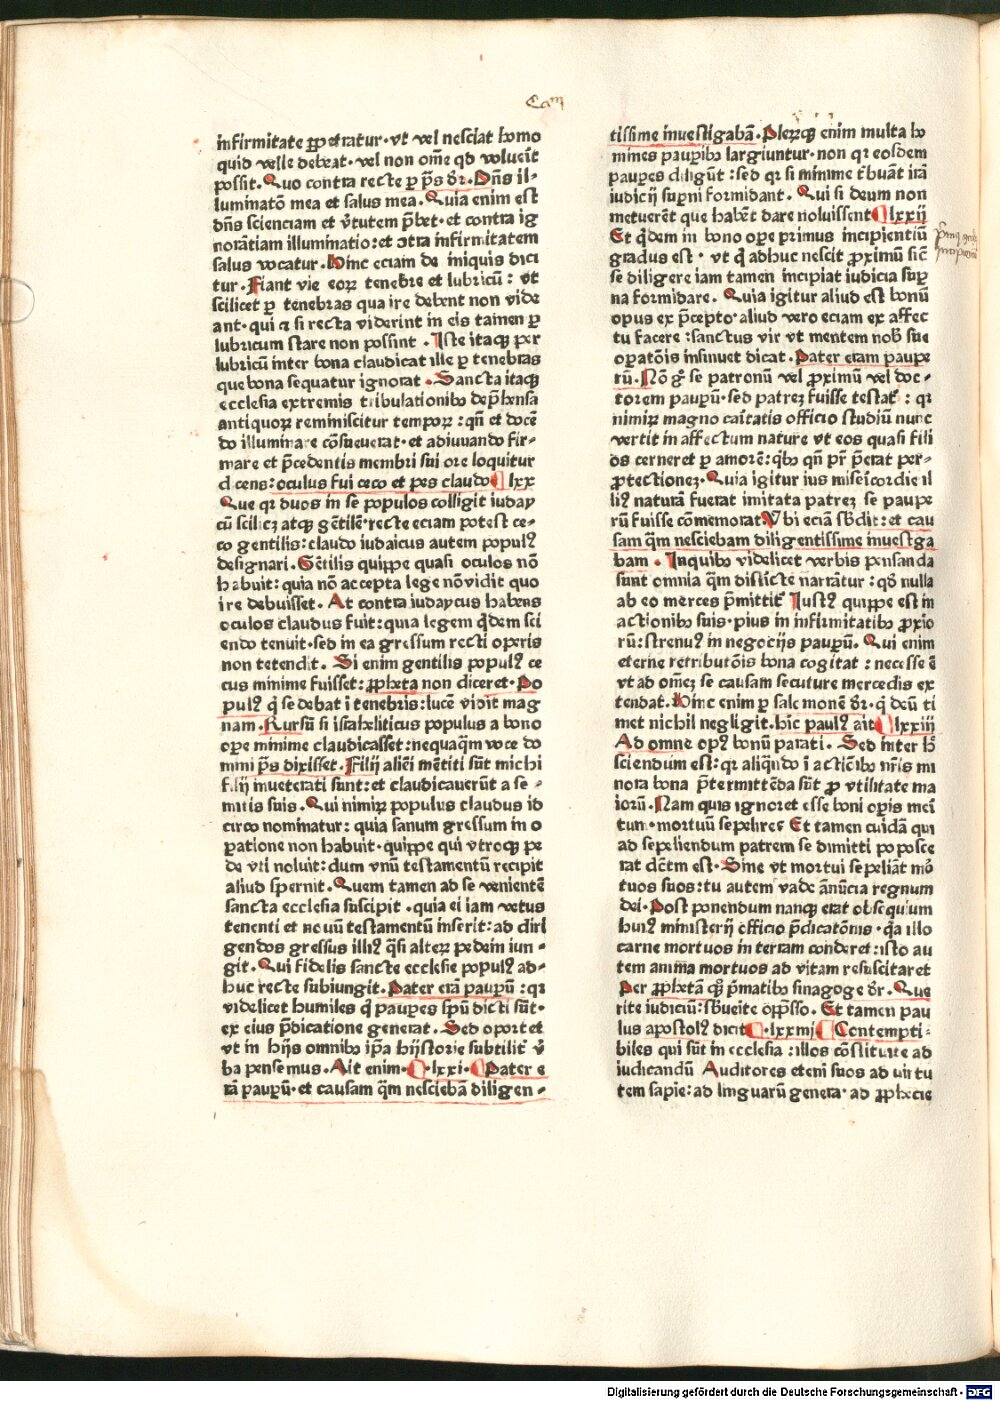 infirmitate ꝑpetratur·vt vel nesciat homo
quid velle debeat·vel non om̄e qd̄ voluerit
possit.Quo contra recte ꝑ p̄s dr̄.Dn̄s il-
luminatō mea et salus mea.Quia enim est
dn̄s scienciam et v̄tutem p̄bet·et contra ig
norātiam illuminatio:et ↄtra infirmitatem
salus vocatur.Hinc eciam de iniquis dici
tur.Fiant vie eoꝝ tenebre et lubricū: vt
scilicet ꝑ tenebras qua ire debent non vide
ant·qui ⁊ si recta viderint in eis tamen ꝑ
lubricum stare non possint .Iste itaqꝫ per
lubricū inter bona claudicat ille ꝑ tenebras
que bona sequatur ignorat.Sancta itaqꝫ
ecclesia extremis tribulationibꝰ dep̄hensa
antiquoꝝ reminiscitur tempoꝝ:qn̄ et docē
do illuminare cōsueuerat·et adiuuando fir-
mare et p̄cedentis membri sui ore loquitur
dicens:oculus fui ceco et pes claudo lxx
Que qꝛ duos in se populos colligit iuday
cū scilicꝫ atqꝫ gētilē·recte eciam potest ce-
co gentilis:claudo iudaicus autem populꝰ
designari.Gētilis quippe quasi oculos nō
habuit:quia nō accepta lege nō vidit quo
ire debuisset. At contra iudaycus habens
oculos claudus fuit:quia legem q̄dem sci
endo tenuit·sed in ea gressum recti operis
non tetendit. Si enim gentilis populꝰ ce
cus minime fuisset:ꝓpheta non diceret.Po
pulꝰ q̄ sedebat i tenebris:lucē vidit mag
nam.Rursū si israheliticus populus a bono
oꝑe minime claudicasset:nequaq̄m voce do
mini p̄s dixisset.Filij alieī mētiti sūt michi
filij inueterati sunt:et claudicauerūt a se-
mitis suis.Qui nimiꝝ populus claudus id
circo nominatur:quia sanum gressum in o
ꝑatione non habuit·quippe qui vtroqꝫ pe
de vti noluit:dum vnū testamentū recipit
aliud spernit.Quem tamen ad se venientē
sancta ecclesia suscipit·quia ei iam vetus
tenenti et nouū testamentū inserit:ad diri
gendos gressus illiꝰ q̄si alteꝝ pedem iun-
git.Qui fidelis sancte ecclesie populꝰ ad-
huc recte subiungit.Pater erā pauꝑū:qꝛ
videlicet humiles q̄ pauꝑes sp̄u dicti sūt·
ex eius p̄dicatione generat. Sed oportet
vt in hijs omnibꝰ ip̄a hijstorie subtilit̄ v̄
ba pensemus.Ait enim.lxxi.Pater e
rā pauꝑū·et causam q̄m nesciebā diligen-
Cam
tissime inuestigabā.Pleꝝqꝫ enim multa ho
mines pauꝑibꝰ largiuntur·non qꝛ eosdem
pauꝑes diligūt:sed qꝛ si minime t̄buāt irā
iudicij suꝑni formidant. Qui si deum non
metuerēt que habēt dare noluissent lxxij
Et q̄dem in bono oꝑe primus incipientiū
gradus est· vt q̄ adhuc nescit ꝓximū sic
se diligere iam tamen incipiat iudicia suꝑ
na formidare. Quia igitur aliud est bonū
opus ex p̄cepto·aliud vero eciam ex affec
tu facere:sanctus vir vt mentem nob̄ sue
oꝑatōis insinuet dicat.Pater eram paupe
rū.Nō g̊ se patronū vel ꝓximū vel doc-
torem pauꝑū·sed patreꝫ fuisse testat̄:qꝛ
nimiꝝ magno caītatis officio studiū nunc
vertit in affectum nature vt eos quasi fili
os cerneret ꝑ amorē:q̄bꝰ qn̄ pr̄ p̄erat per-
ꝓtectioneꝫ.Quia igitur ius misericordie il
liꝰ naturā fuerat imitata patreꝫ se paupe
rū fuisse cōmemorat.Vbi eciā sb̄dit:et cau
sam q̄m nesciebam diligentissime inuestiga
bam.Inquibꝰ videlicet verbis pensanda
sunt omnia q̄m districte narrātur:qd̄ nulla
ab eo merces p̄mittit̄ Iustꝰ quippe est in
actionibꝰ suis·pius in infirmitatibꝰ ꝓxio
rū:strenuꝰ in negocijs pauꝑū. Qui enim
eterne retributōis bona cogitat:necesse ē
vt ad om̄eꝫ se causam secuture mercedis ex
tendat.Hinc enim ꝑ salomonē dr̄.q̄ deū ti
met nichil negligit.hic paulꝰ ait lxxiij
Ad omne opꝰ bonū parati. Sed inter h̄
sciendum est:qꝛ aliqn̄do ī actiōibꝰ nr̄is mi
nora bona p̄termittēda sūt ꝓ vtilitate ma
ioꝝ.Nam quis ignoret esse boni oꝑis meī
tum·mortuū sepelire Et tamen cuidā qui
ad sepeliendum patrem se dimitti poposce
rat dc̄m est.Sine vt mortui sepeliāt mor
tuos suos:tu autem vade ānūcia regnum
dei.Post ponendum nanqꝫ erat obsequium
huiꝰ ministerij officio p̄dicatōnis·q̄a illo
carne mortuos in terram conderet:isto au
tem anima mortuos ad vitam resuscitaret
Per ꝓphetā qꝫ p̄matibꝰ sinagoge dr̄.Que
rite iudiciū:sb̄ueite opp̄sso. Et tamen pau
lus apostolꝰ dicit.lxxiiij Contempti-
biles qui sūt in ecclesia:illos cōstituite ad
iudicandū Auditores eteni suos ad uirtu
tem sapie:ad linguarū genera·ad ꝓphecie
Digitalisierung gefördert durch die Deutsche Forschungsgemeinschaft - DFG